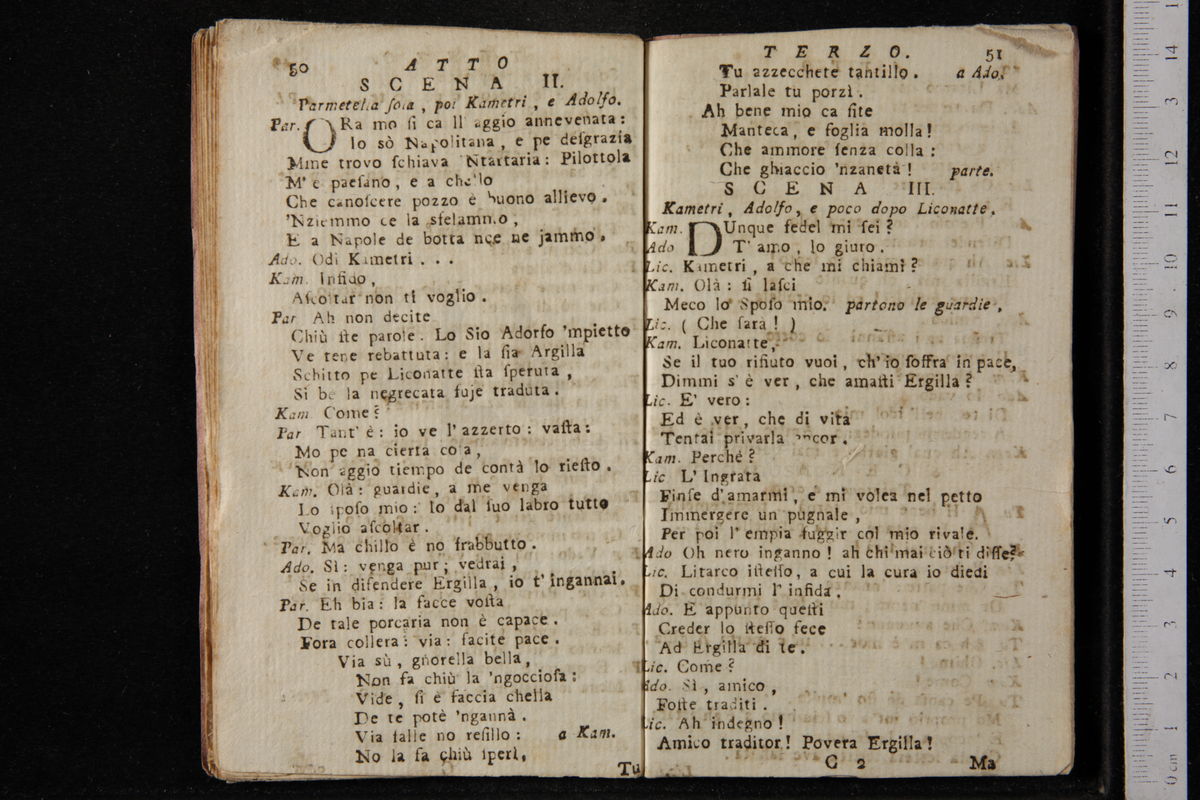 50 ATTO
SCENA II.
Parmetella sola, poi Kametri, e Adolfo.
Par. ORa mo ſi ca ll' aggio annevenata:
Io sò Napolitana, e pe deſgrazia
Mme trovo ſchiava 'Ntartaria: Pilottola
M' e paeſano, e a chello
Che canoſcere pozzo è buono allievo.
'Nziemmo ce la sfelammo,
E a Napole de botta nce ne jammo.
Ado. Odi Kametri...
Kam. Infido,
Aſcoltar non ti voglio.
Par Ah non decite
Chiù ſte parole. Lo Sio Adorfo 'mpietto
Ve tene rebattuta: e la ſia Argilla
Schitto pe Liconatte ſta ſperuta,
Si be la negrecata fuje traduta.
Kam Come?
Par Tant' è: io ve l'azzerto: vaſta:
Mo pe na cierta coſa,
Non aggio tiempo de contà lo rieſto.
Kam. Olà: guardie, a me venga
Lo ſpoſo mio: Io dal ſuo labro tutto
Voglio aſcoltar.
Par. Ma chillo è no frabbutto.
Ado. Sì: venga pur; vedrai,
Se in difendere Ergilla, io t' ingannai.
Par. Eh bia: la facce voſta
De tale porcaria non è capace.
Fora collera: via: facite pace.
Via sù, gnorella bella,
Non fa chiù la 'ngocciofa:
Vide, ſi è faccia chella
De te potè 'ngannà.
Via falle no reſillo: a Kam.
No la fa chiù ſperì.
Tu
TERZO. 51
Tu azzecchete tantillo. a Ado.
Parlale tu porzì.
Ah bene mio ca ſite
Manteca, e foglia molla!
Che ammore ſenza colla:
Che ghiaccio 'nzanetà! parte.
SCENA III.
Kametri, Adolfo, e poco dopo Liconatte.
Kam. DUnque fedel mi ſei?
Ado T' amo, lo giuro.
Lic. Kametri, a che mi chiami?
Kam. Olà: ſi laſci
Meco lo Spoſo mio. partono le guardie.
Lic. (Che ſarà!)
Kam. Liconatte,
Se il tuo rifiuto vuoi, ch' io ſoffra in pace,
Dimmi s' è ver, che amaſti Ergilla?
Lic. E' vero:
Ed è ver, che di vita
Tentai privarla ancor.
Kam. Perchè?
Lic L' Ingrata
Finſe d'amarmi, e mi volea nel petto
Immergere un pugnale,
Per poi l' empia fuggir col mio rivale.
Ado Oh nero inganno! ah chi mai ciò ti diſſe?
Lic. Litarco iſteſſo, a cui la cura io diedi
Di condurmi l' infida.
Ado. E appunto queſti
Creder lo ſteſſo fece
Ad Ergilla di te.
Lic. Come?
Ado. Sì, amico,
Foſte traditi.
Lic. Ah indegno!
Amico traditor! Povera Ergilla!
C 2 Ma